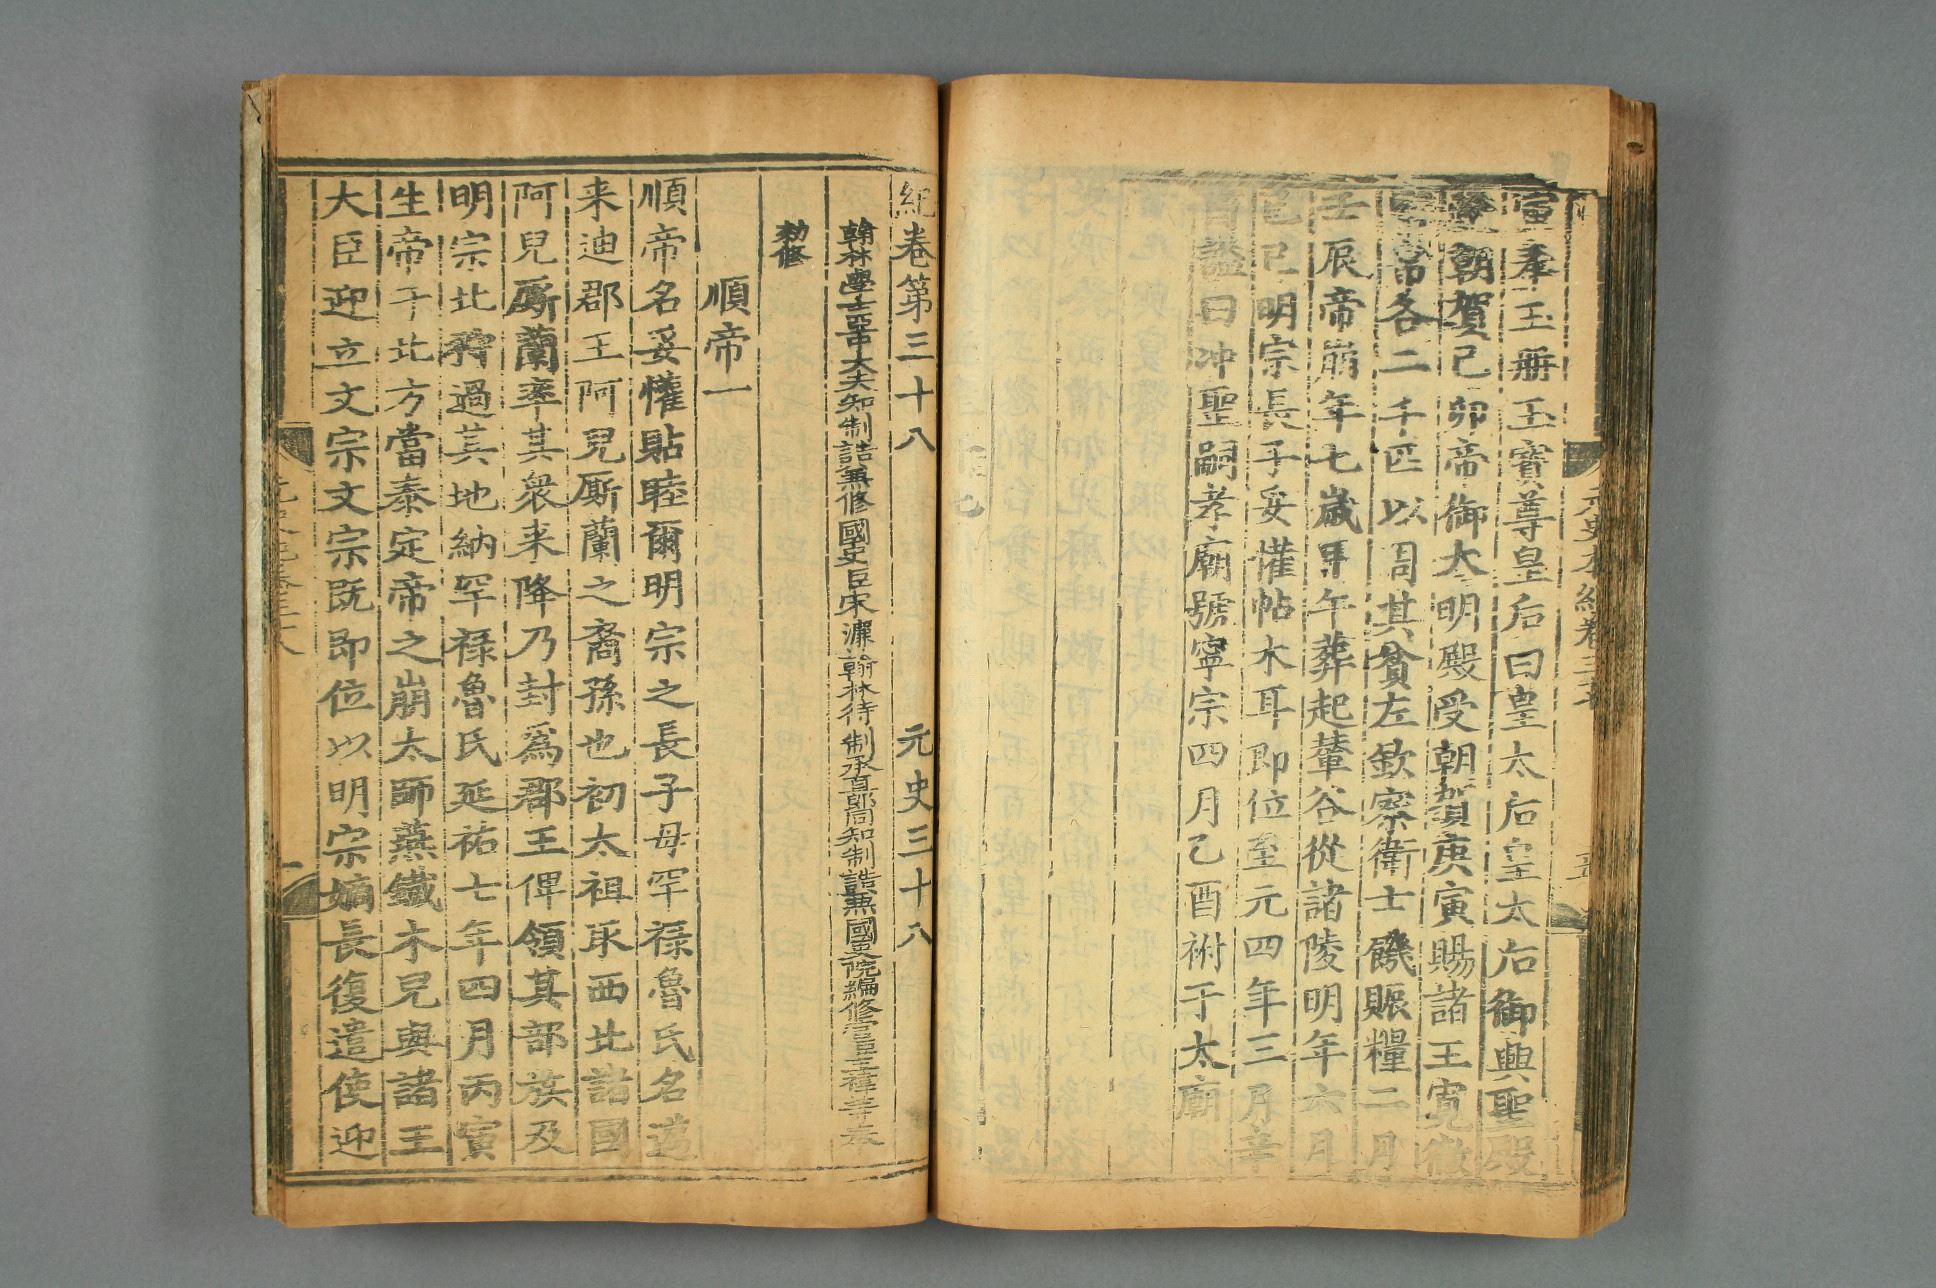 元史本紀卷三十七
宣奉玉册玉寳尊皇后曰皇太后皇太后御興聖殿
受朝賀己卯帝御大明殿受朝賀庚寅賜諸王寛徹
幣帛各二千匹以周其貧左欽察衛士饑賑糧二月
壬辰帝崩年七歳甲午葬起輦谷從諸陵明年六月
己巳明宗長子妥懽帖木耳即位至元四年三月辛
酉諡曰冲聖嗣孝廟號寧宗四月乙酉祔于太廟
紀卷第三十八 元史三十八
翰林學士亞中大夫知制誥兼修國史臣宋濂翰林待制承直郎同知制誥兼國史院編修官臣王禕等奉
勅修
順帝一
順帝名妥懽貼睦爾明宗之長子母罕祿魯氏名邁
来迪郡王阿兒厮蘭之裔孫也初太祖取西北諸國
阿兒厮蘭率其衆来降乃封爲郡王俾領其部族及
明宗北狩過其地納罕祿魯氏延祐七年四月丙寅
生帝于北方當泰定帝之崩太師燕鐵木兒與諸王
大臣迎立文宗文宗既即位以明宗嫡長復遣使迎
元史紀卷三十八 一